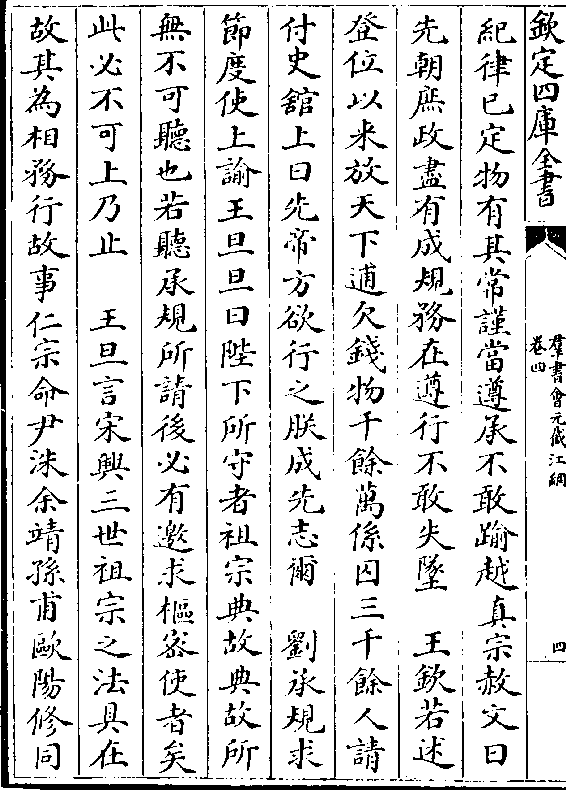 欽定四庫全書
羣書會元截江網
卷四
四
紀律已定物有其常謹當遵承不敢踰越真宗赦文曰
先朝庶政盡有成規務在遵行不敢失墜　王欽若述
登位以來放天下逋欠錢物千餘萬係囚三千餘人請
付史舘上曰先帝方欲行之朕成先志爾　劉承規求
節度使上諭王旦旦曰陛下所守者祖宗典故典故所
無不可聽也若聽承規所請後必有邀求樞密使者矣
此必不可上乃止　王旦言宋興三世祖宗之法具在
故其為相務行故事仁宗命尹洙余靖孫甫歐陽修同